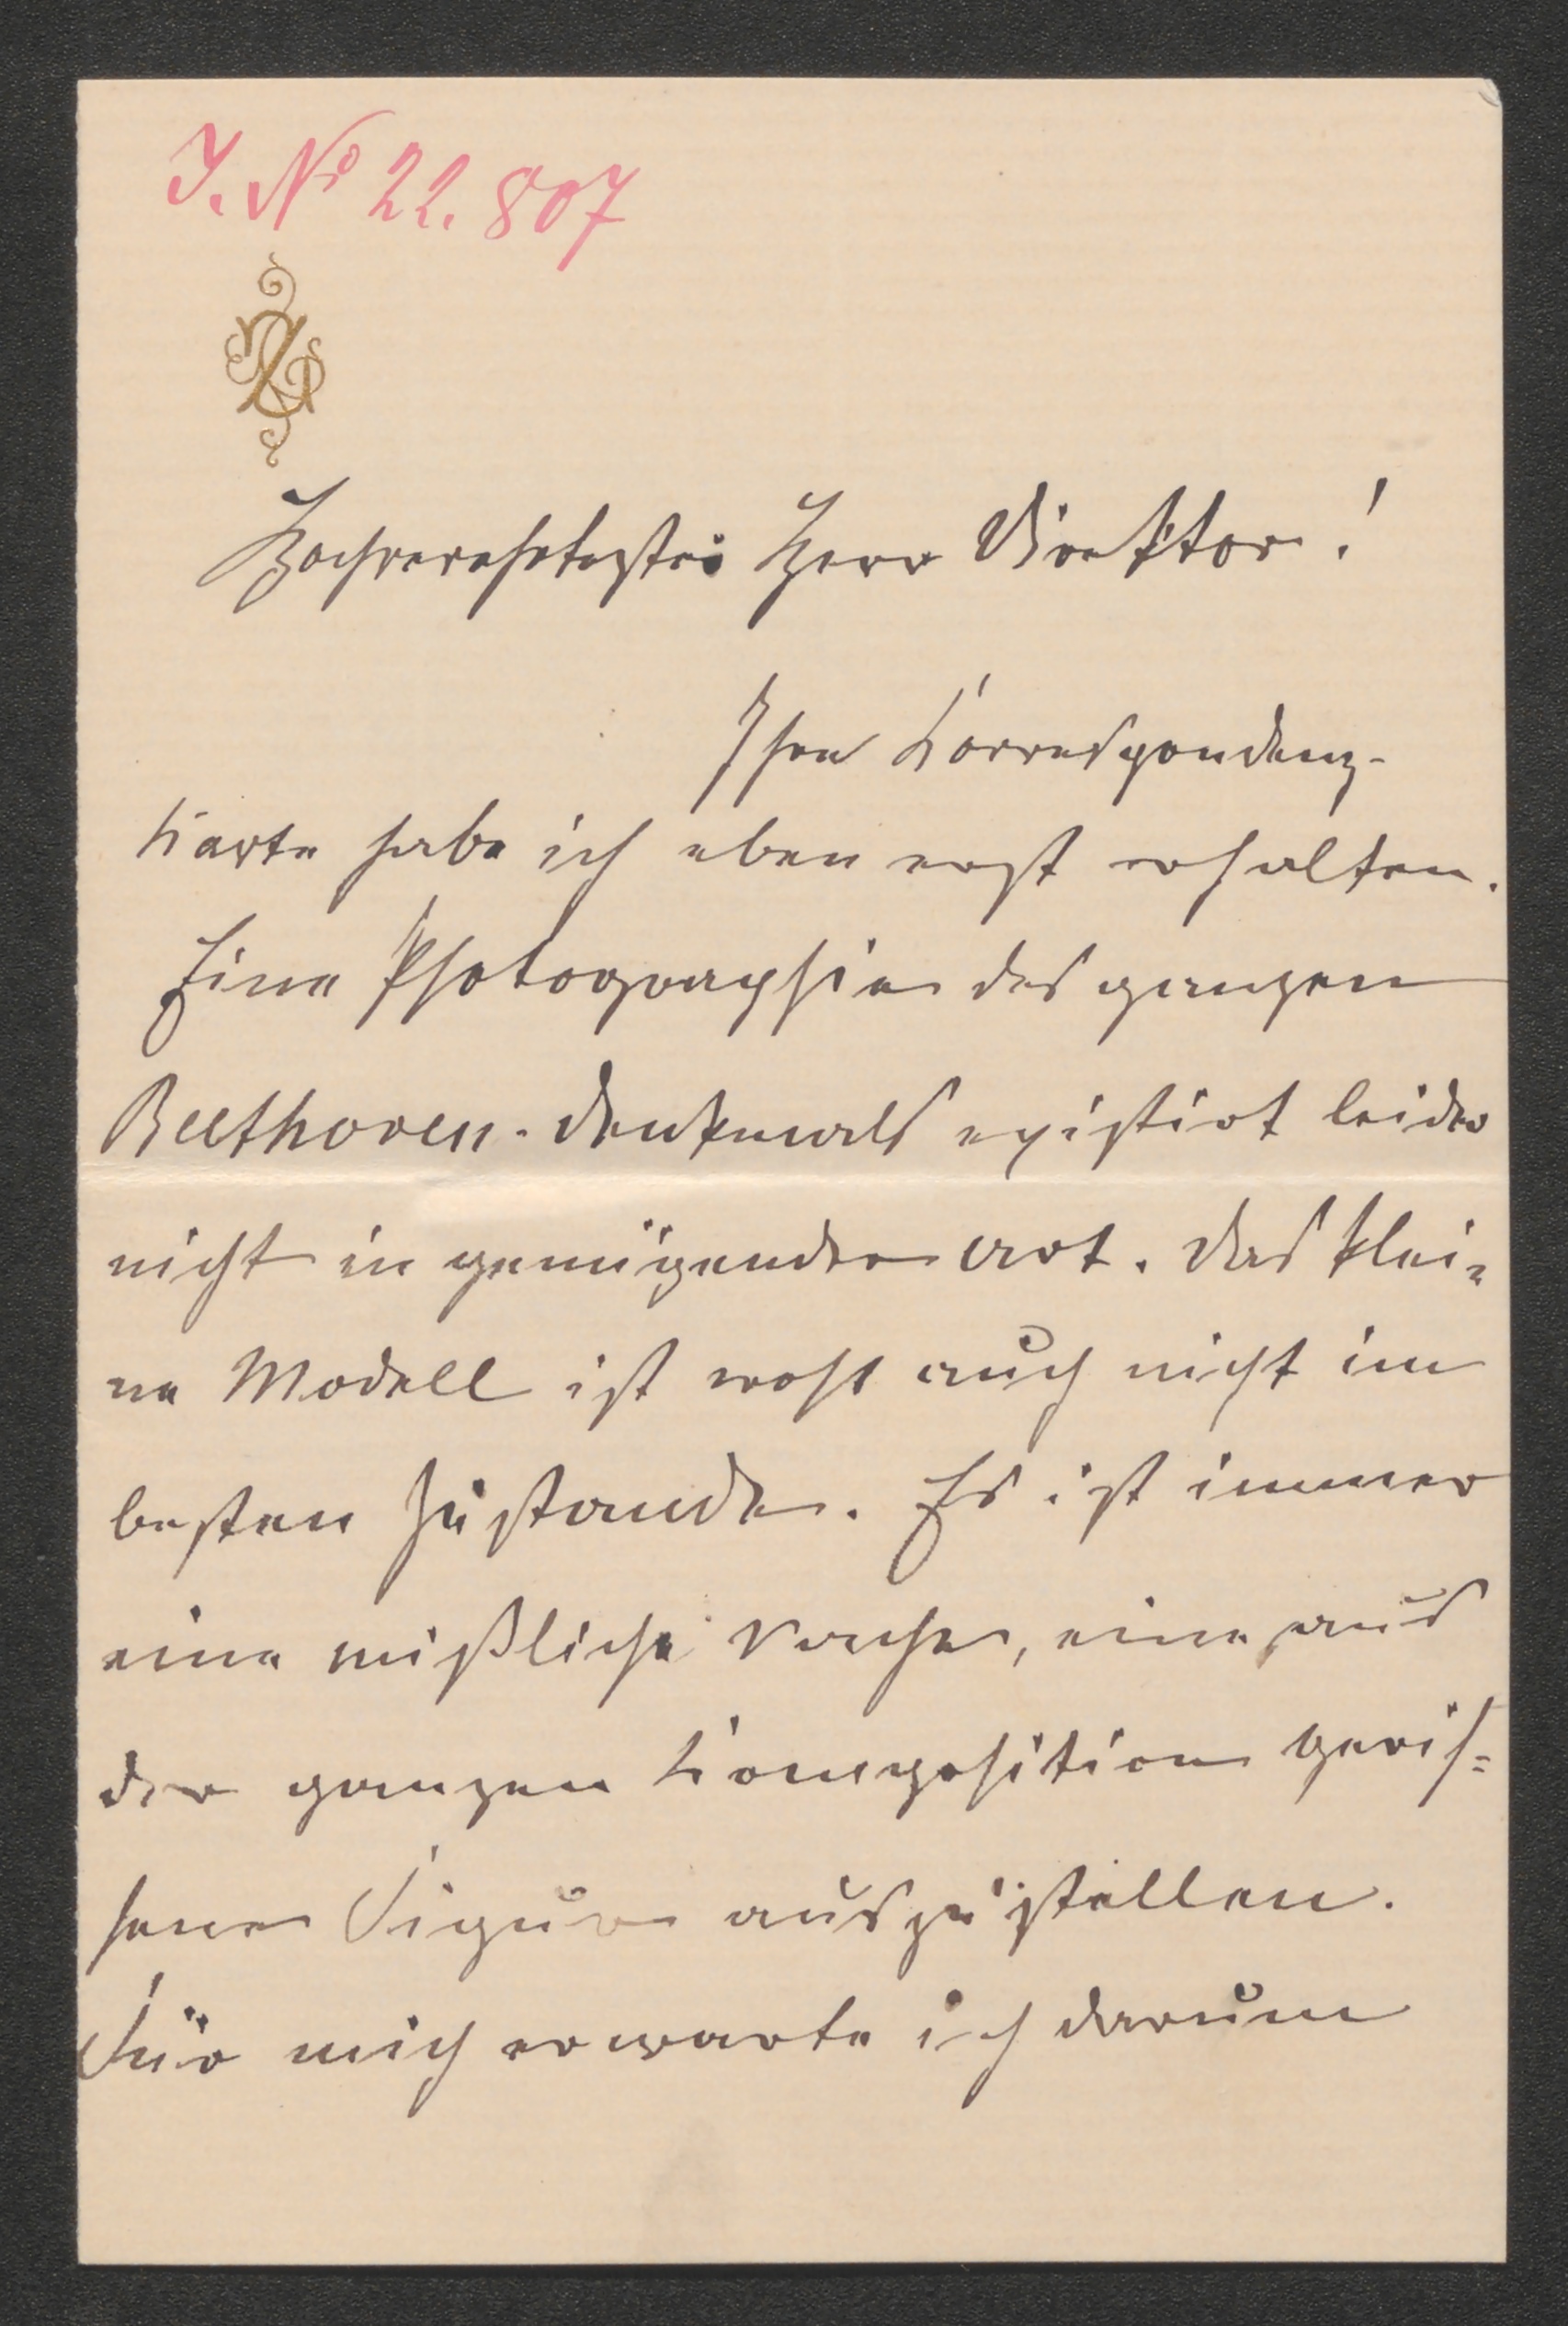 J. No 22.807
Hochverehrtester Herr Direktor!
Ihre Korrespondenz-
Karte habe ich eben erst erhalten.
Eine Photographie des ganzen
Beethoven-Denkmals existirt leider
nicht in genügender Art. Das klei-
ne Modell ist wohl auch nicht im
besten Zustande. Es ist immer
eine mißliche Sache, eine aus
der ganzen Komposition geris-
sene Figur auszustellen.
Für mich erwarte ich darum